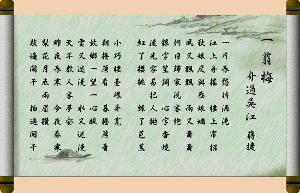 一翦梅
舟過吳江 蔣捷
一片春愁待酒澆
江上舟搖 樓上帘招
秋娘與泰娘
風又飄飄 雨又蕭蕭
何日歸家洗客袍
銀字笙調 心字香燒
流光容易把人拋
紅了櫻桃 綠了芭蕉
小巧樓臺眼界寬
朝捲簾看 暮捲簾看
故鄉一望一心酸
雲又迷漫 水又迷漫
天不教人客夢安
昨夜春寒 今夜春寒
梨花月底兩眉攢
敲遍闌干 拍遍闌干